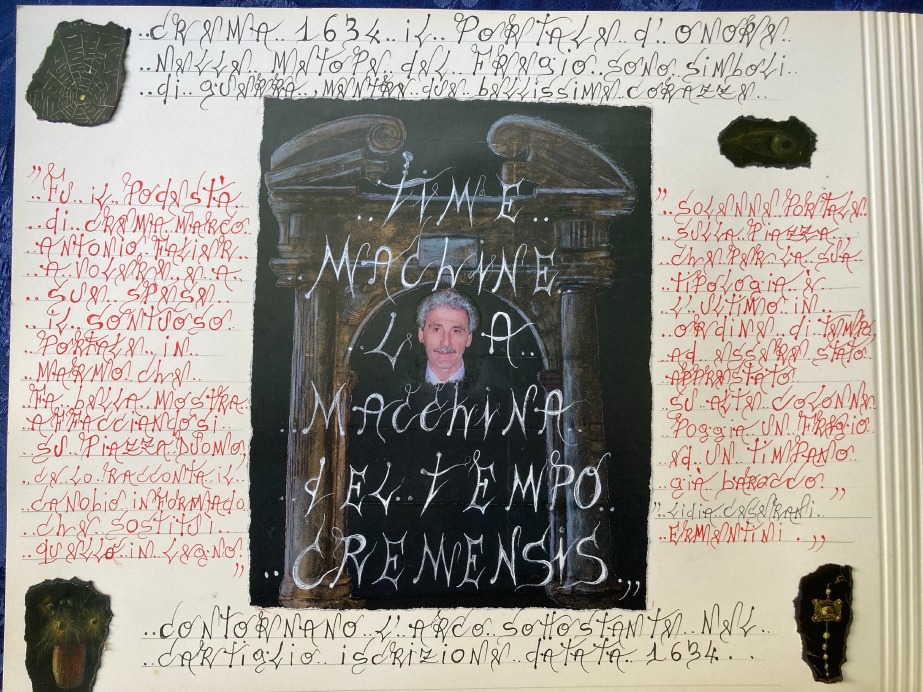 ..CREMA 1634 iL PORTALE d'ONORE.
..NELLE METOPE DEL FREGIO..SONO SiMBOLi..
..di GUERRA..,MENTRE DUE bELLISSiME CORAZZE..
..TiME..
..MAChiNE
..L A..
..MACChiNA..
..DEL..TEMPO..
..CREMENSiS..,,
"FU iL PODESTÀ
di CREMA MARCO
ANTONIO FALiER..
..A VOLERE, E A
SUE SPESE
iL SONTUOSO
PORTALE iN
MARMO ChE
FA bELLA MOSTRA
AFFACCIANDOSi
SU PiAZZA DUOMO
CE LO RACCONTA iL
CANObiO iNFORMADO
ChE SOSTITUì
QUELLO iN LEGNO"
"SOLENNE PORTALE..
SULLA PiAZZA
ChE PER LA SUA
TiPOLOGiA È
L'ULTIMO iN
ORDiNE di TEMPO
AD ESSERE STATO
APPRESTATO
SU ALTE COLONNE
POGGiA UN FREGiO
ED UN TiMPANO
GiÀ bAROCCO"
"LidiA CESERANi
ERMENTiNi.,,
..CONTORNANO L'ARCO SOTTOSTANTE NEL..
..CARTiGLIO iSCRIZIONE dATATA 1634...